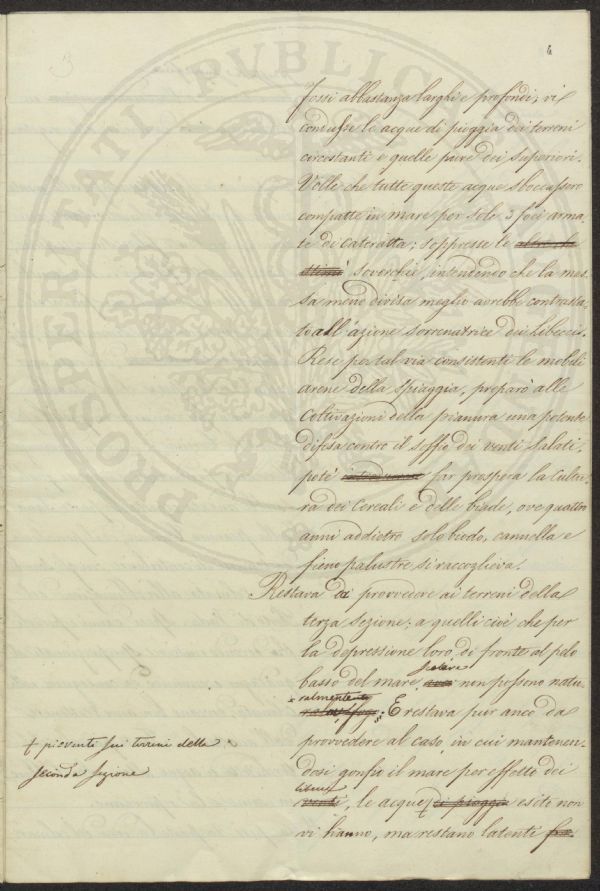 4
fossi abbastanza larghi e profondi; vi
condusse le acque di pioggia dei terreni
circostanti e quelle pure dei superiori.
Volle che tutte queste acque sboccassero
compatte in mare per sole 3 foci arma-
te di cateratta; soppresse le
soverchie, intendendo che la mas-
sa meno divisa meglio avrebbe contrasta-
to all'azione sorrenatrice dei libecci.
Rese per tal via consistenti le mobili
arene della spiaggia, preparò alle
Coltivazioni della pianura una potente
difesa contro il soffio dei venti salati,
potè far prospera la Cultu-
ra dei Cereali e delle biade, ove quattro
anni addietro solo biodo, cannella e
fieno palustre si raccoglieva.
Restava di provvedere ai terreni della
terza Sezione; a quelli cioè che per
la depressione loro di fronte al pelo
basso del mare, non possono natu-
ralmente
E restava pur anco da
provvedere al caso, in cui mantenen-
dosi gonfio il mare per effetto dei
venti, le acque di pioggia esito non
vi hanno, ma restano latenti
+ pioventi sui terreni della
seconda sezione
PUBLIC
PROSPERITATI